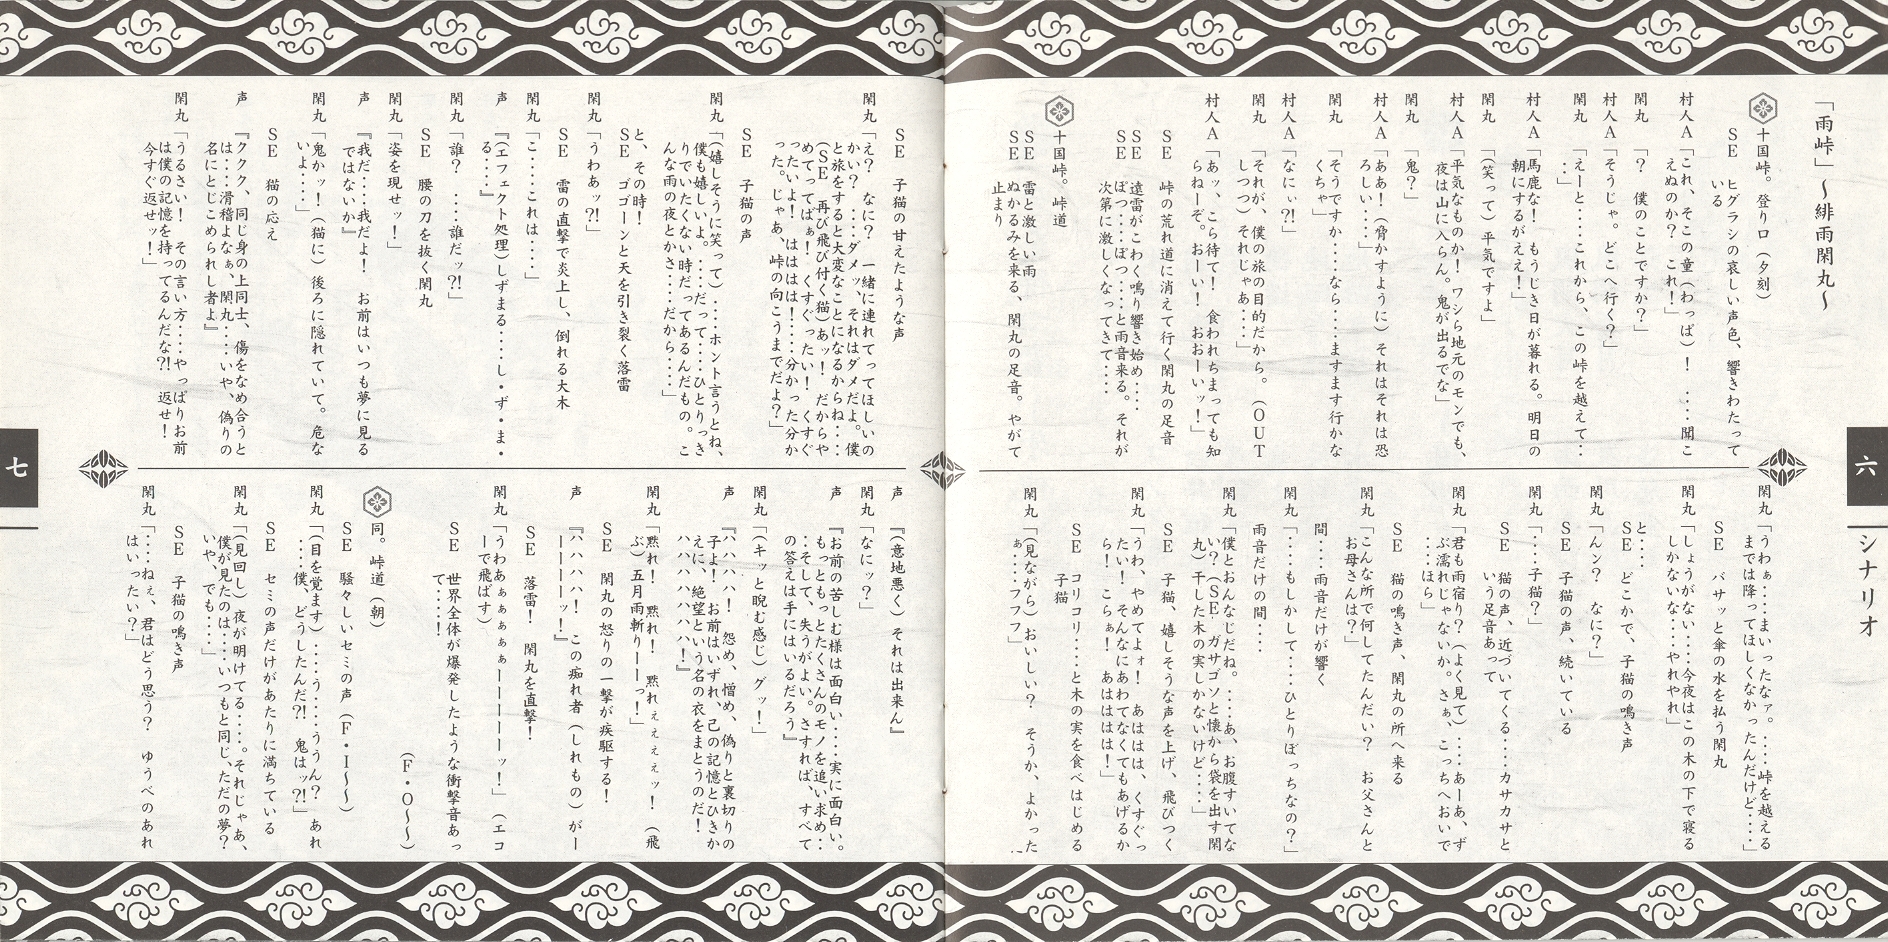 六
シナリオ
「雨峠」～緋雨閑丸～
十国峠。登り口（夕刻）
ＳＥ　ヒグラシの哀しい声色、響きわたって
いる
村人Ａ「これ、そこの童（わっぱ）！　‥‥聞こ
えぬのか？　これ！」
閑丸　「？　僕のことですか？」
村人Ａ「そうじゃ。どこへ行く？」
閑丸　「えーと‥‥これから、この峠を越えて‥
‥」
村人Ａ「馬鹿な！　もうじき日が暮れる。明日の
朝にするがええ！」
閑丸　「（笑って）平気ですよ」
村人Ａ「平気なものか！　ワシら地元のモンでも、
夜は山に入らん。鬼が出るでな」
閑丸　「鬼？」
村人Ａ「ああ！（脅かすように）それはそれは恐
ろしい‥‥」
閑丸　「そうですか‥‥なら‥‥ますます行かな
くちゃ」
村人Ａ「なにぃ?!」
閑丸　「それが、僕の旅の目的だから。（ＯＵＴ
しつつ）それじゃあ‥‥」
村人Ａ「あッ、こら待て！　食われちまっても知
らねーぞ。おーい！　おおーいッ！」
ＳＥ　峠の荒れ道に消えて行く閑丸の足音
ＳＥ　遠雷がこわく鳴り響き始め‥‥
ＳＥ　ぽつ‥‥ぽつ‥‥と雨音来る。それが
次第に激しくなってきて‥‥
十国峠。峠道
ＳＥ　雷と激しい雨
ＳＥ　ぬかるみを来る、閑丸の足音。やがて
止まり
閑丸　「うわぁ‥‥まいったなァ。‥‥峠を越える
までは降ってほしくなかったんだけど‥‥」
ＳＥ　バサッと傘の水を払う閑丸
閑丸　「しょうがない‥‥今夜はこの木の下で寝る
しかないな‥‥やれやれ」
と‥‥
ＳＥ　どこかで、子猫の鳴き声
閑丸　「んン？　なに？」
ＳＥ　子猫の声、続いている
閑丸　「‥‥子猫？」
ＳＥ　猫の声、近づいてくる‥‥カサカサと
いう足音あって
閑丸　「君も雨宿り？（よく見て）‥‥あーあ、ず
ぶ濡れじゃないか。さぁ、こっちへおいで
‥‥ほら」
ＳＥ　猫の鳴き声、閑丸の所へ来る
閑丸　「こんな所で何してたんだい？　お父さんと
お母さんは？」
間‥‥雨音だけが響く
閑丸　「‥‥もしかして‥‥ひとりぼっちなの？」
雨音だけの間‥‥
閑丸　「僕とおんなじだね。‥‥あ、お腹すいてな
い？（ＳＥ　ガサゴソと懐から袋を出す閑
丸）干した木の実しかないけど‥‥」
ＳＥ　子猫、嬉しそうな声を上げ、飛びつく
閑丸　「うわ、やめてよォ！　あははは、くすぐっ
たい！　そんなにあわてなくてもあげるか
ら！　こらぁ！　あはははは！」
ＳＥ　コリコリ‥‥と木の実を食べはじめる
子猫
閑丸　「（見ながら）おいしい？　そうか、よかった
ぁ‥‥フフフ」
ＳＥ　子猫の甘えたような声
閑丸　「え？　なに？　一緒に連れてってほしいの
かい？　‥‥ダメッ、それはダメだよ。僕
と旅をすると大変なことになるからね‥‥
（ＳＥ　再び飛び付く猫）あッ！　だからや
めてってばぁ！　くすぐったい！　くすぐ
ったいよ！　はははは！‥‥分かった分か
った。じゃあ、峠の向こうまでだよ？」
ＳＥ　子猫の声
閑丸　「（嬉しそうに笑って）‥‥ホント言うとね、
僕も嬉しいよ。‥‥だって‥‥ひとりっき
りでいたくない時だってあるんだもの。こ
んな雨の夜とかさ‥‥だから‥‥」
と、その時！
ＳＥ　ゴゴーンと天を引き裂く落雷
閑丸　「うわぁッ?!」
ＳＥ　雷の直撃で炎上し、倒れる大木
閑丸　「こ‥‥これは‥‥」
声　　『（エフェクト処理）しずまる‥‥し・ず・ま・
る‥‥』
閑丸　「誰？　‥‥誰だッ?!」
ＳＥ　腰の刀を抜く閑丸
閑丸　「姿を現せッ！」
声　　『我だ‥‥我だよ！　お前はいつも夢に見る
ではないか』
閑丸　「鬼かッ！（猫に）後ろに隠れていて。危な
いよ‥‥」
ＳＥ　猫の応え
声　　『ククク、同じ身の上同士、傷をなめ合うと
は‥‥滑稽よなぁ、閑丸‥‥いや、偽りの
名にとじこめられし者よ』
閑丸　「うるさい！　その言い方‥‥やっぱりお前
は僕の記憶を持ってるんだな?!　返せ！
今すぐ返せッ！」
声　　『（意地悪く）それは出来ん』
閑丸　「なにッ？」
声　　『お前の苦しむ様は面白い‥‥実に面白い。
もっともっとたくさんのモノを追い求め‥
‥そして、失うがよい。さすれば、すべて
の答えは手にはいるだろう』
閑丸　「（キッと睨む感じ）グッ！」
声　　『ハハハハ！　怨め、憎め、偽りと裏切りの
子よ！　お前はいずれ、己の記憶とひきか
えに、絶望という名の衣をまとうのだ！
ハハハハハハハ！』
閑丸　「黙れ！　黙れ！　黙れぇぇぇぇッ！（飛
ぶ）五月雨斬りーーっ！」
ＳＥ　閑丸の怒りの一撃が疾駆する！
声　　『ハハハハ！　この痴れ者（しれもの）がー
ーーーーッ！』
ＳＥ　落雷！　閑丸を直撃！
閑丸　「うわあぁぁぁぁぁーーーーーッ！」（エコ
ーで飛ばす）
ＳＥ　世界全体が爆発したような衝撃音あっ
て‥‥！
（Ｆ・Ｏ～～）
同。峠道（朝）
ＳＥ　騒々しいセミの声（Ｆ・Ｉ～～）
閑丸　「（目を覚ます）‥‥う‥‥ううん？　あれ
‥‥僕、どうしたんだ?!　鬼はッ?!」
ＳＥ　セミの声だけがあたりに満ちている
閑丸　「（見回し）夜が明けてる‥‥。それじゃあ、
僕が見たのは‥‥いつもと同じ、ただの夢？
いや、でも‥‥」
ＳＥ　子猫の鳴き声
閑丸　「‥‥ねぇ、君はどう思う？　ゆうべのあれ
はいったい？」
七